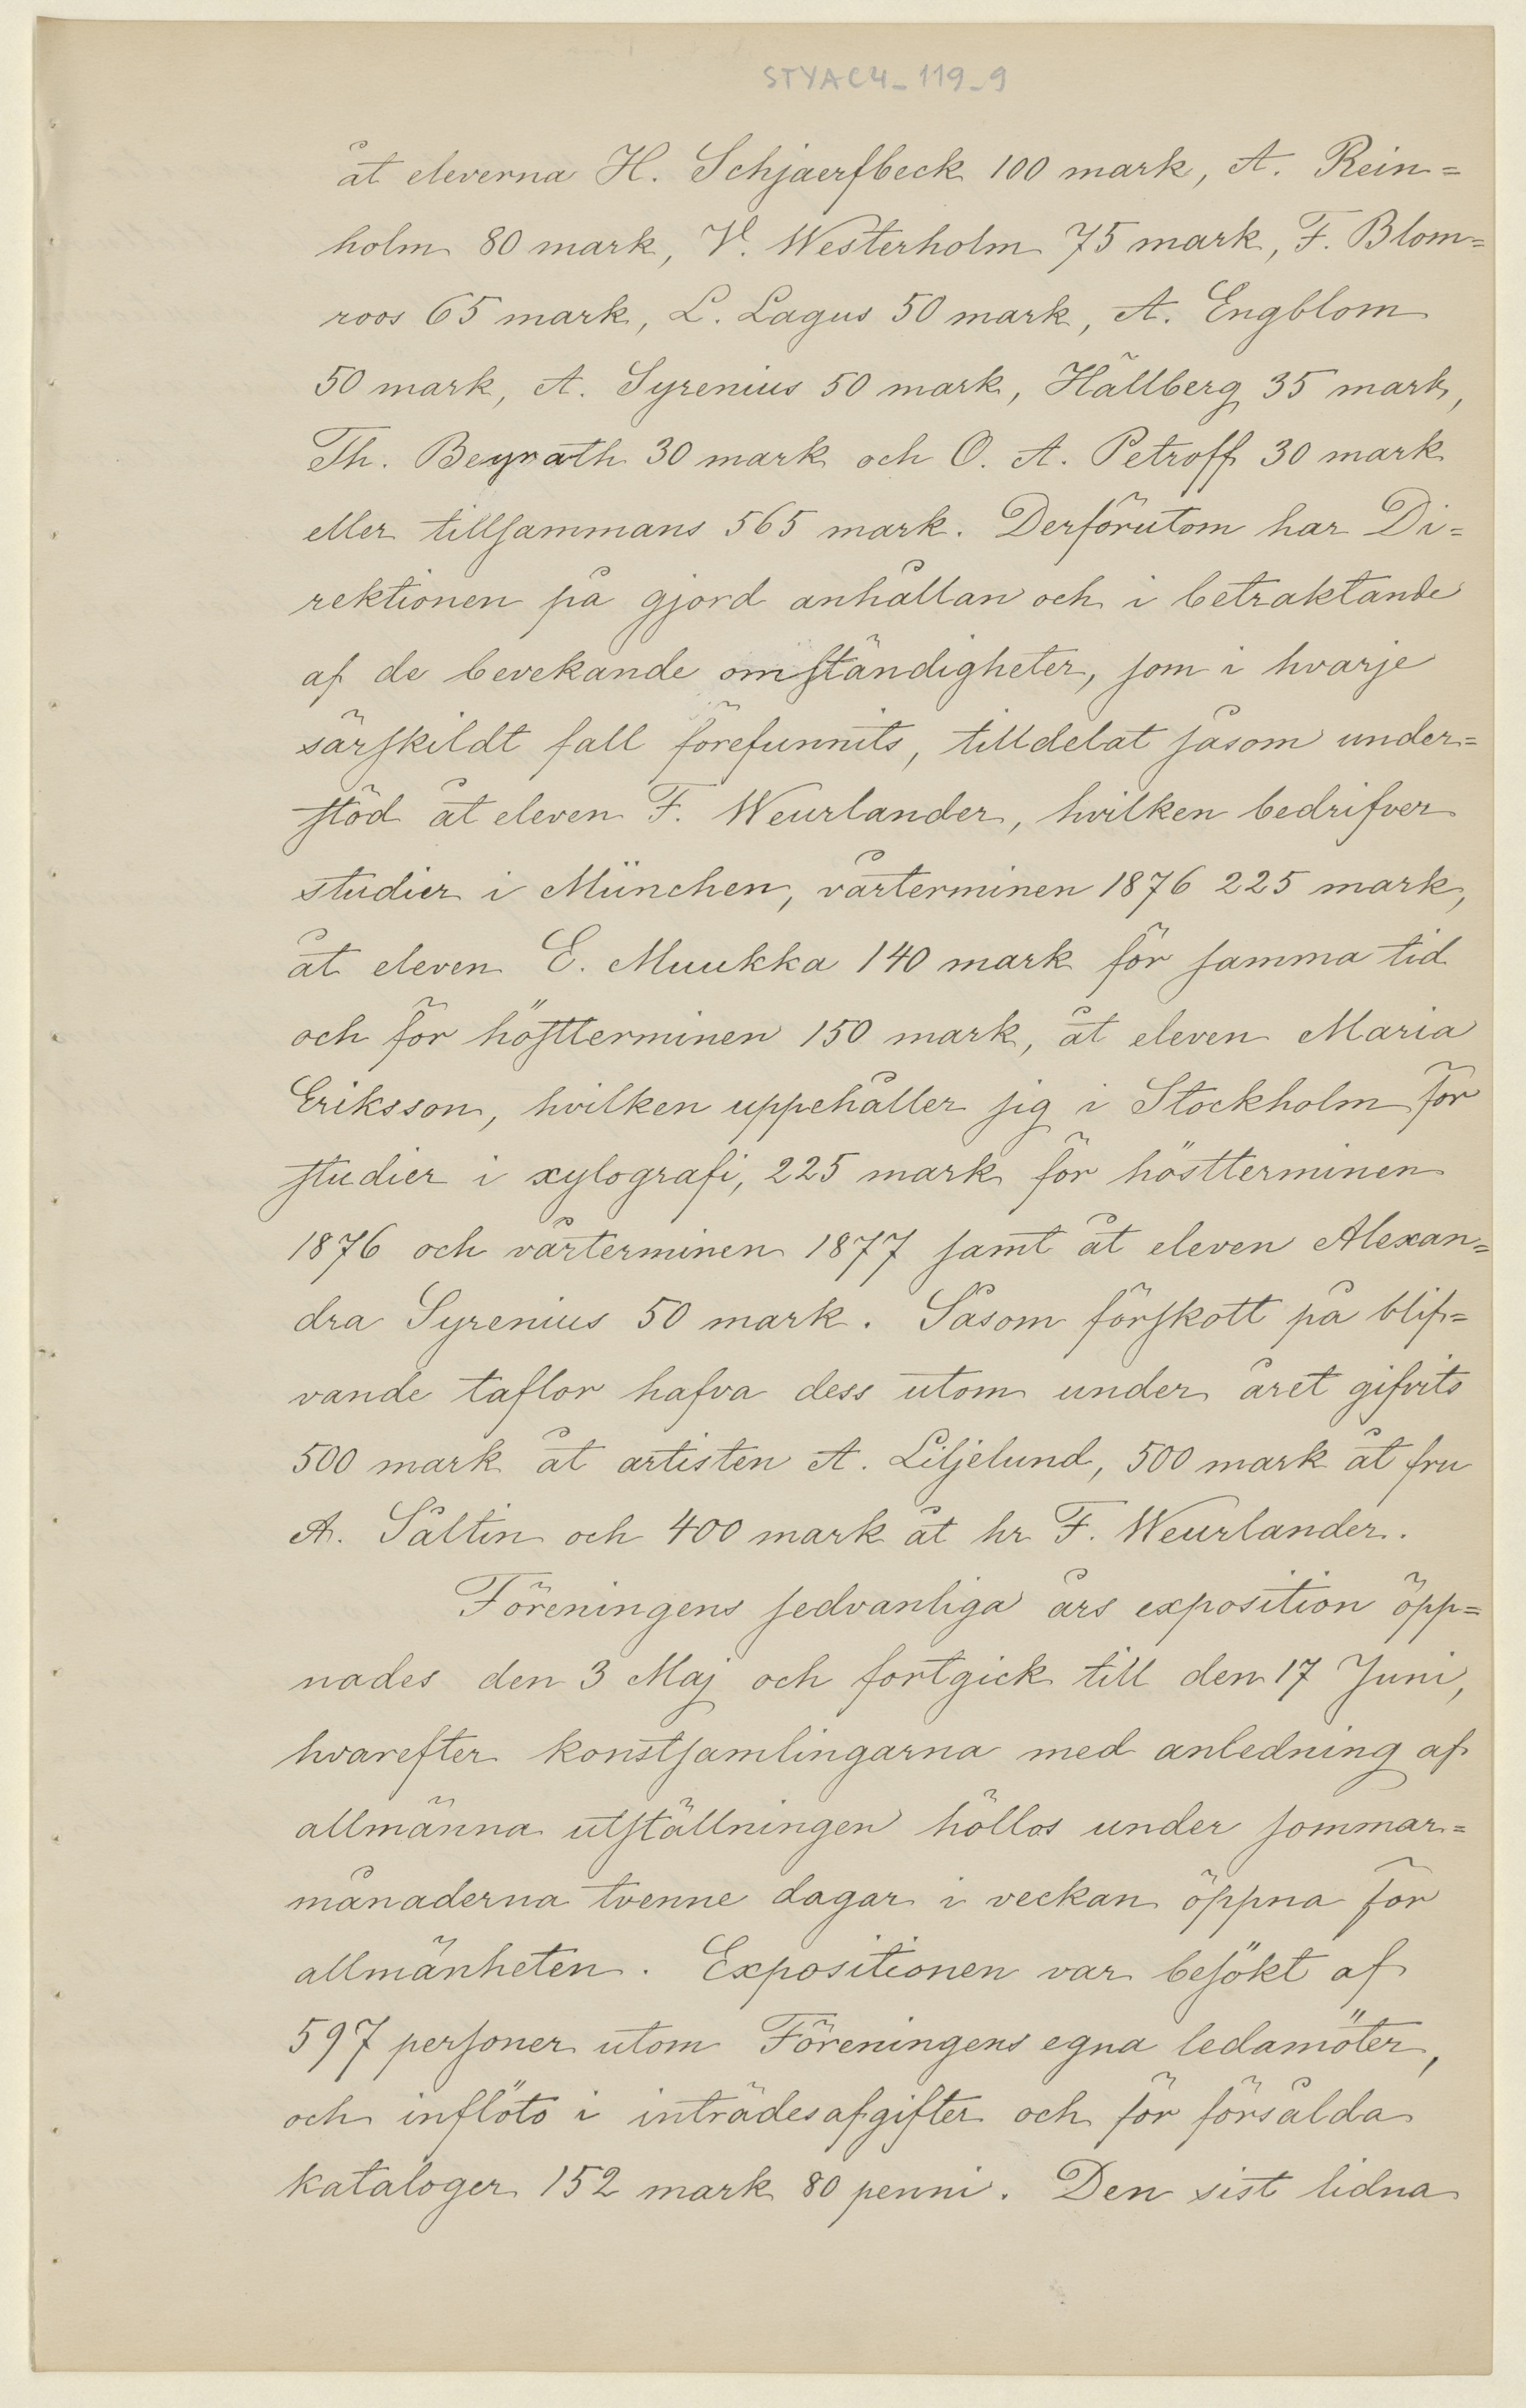 STYAC4_119_9
åt eleverna H. Schjaerfbeck 100 mark, A. Rein=
holm 80 mark, V. Westerholm 75 mark, F. Blom=
roos 65 mark, L. Lagus 50 mark, A. Engblom
50 mark, A. Syrenius 50 mark, Hällberg 35 mark,
Th. Beyrath 30 mark och O. A. Petroff 30 mark
eller tillsammans 565 mark. Derförutom har Di=
rektionen på gjord anhållan och i betraktande
af de bevekande omständigheter, som i hvarje
särskildt fall förefunnits, tilldelat såsom under=
stöd åt eleven F. Weurlander, hvilken bedrifver
studier i München, vårterminen 1876 225 mark,
åt eleven E. Muukka 140 mark för samma tid
och för höstterminen 150 mark, åt eleven Maria
Eriksson, hvilken uppehåller sig i Stockholm för
studier i xylografi, 225 mark för höstterminen
1876 och vårterminen 1877 samt åt eleven Alexan=
dra Syrenius 50 mark. Såsom förskott på blif=
vande taflor hafva dess utom under året gifvits
500 mark åt artisten A. Liljelund, 500 mark åt fru
A. Såltin och 400 mark åt hr F. Weurlander.
Föreningens sedvanliga års exposition öpp=
nades den 3 Maj och fortgick till den 17 Juni,
hvarefter konstsamlingarna med anledning af
allmänna utställningen höllos under sommar=
månaderna tvenne dagar i veckan öppna för
allmänheten. Expositionen var besökt af
597 personer utom Föreningens egna ledamöter,
och inflöto i inträdesafgifter och för försålda
kataloger 152 mark 80 penni. Den sist lidna